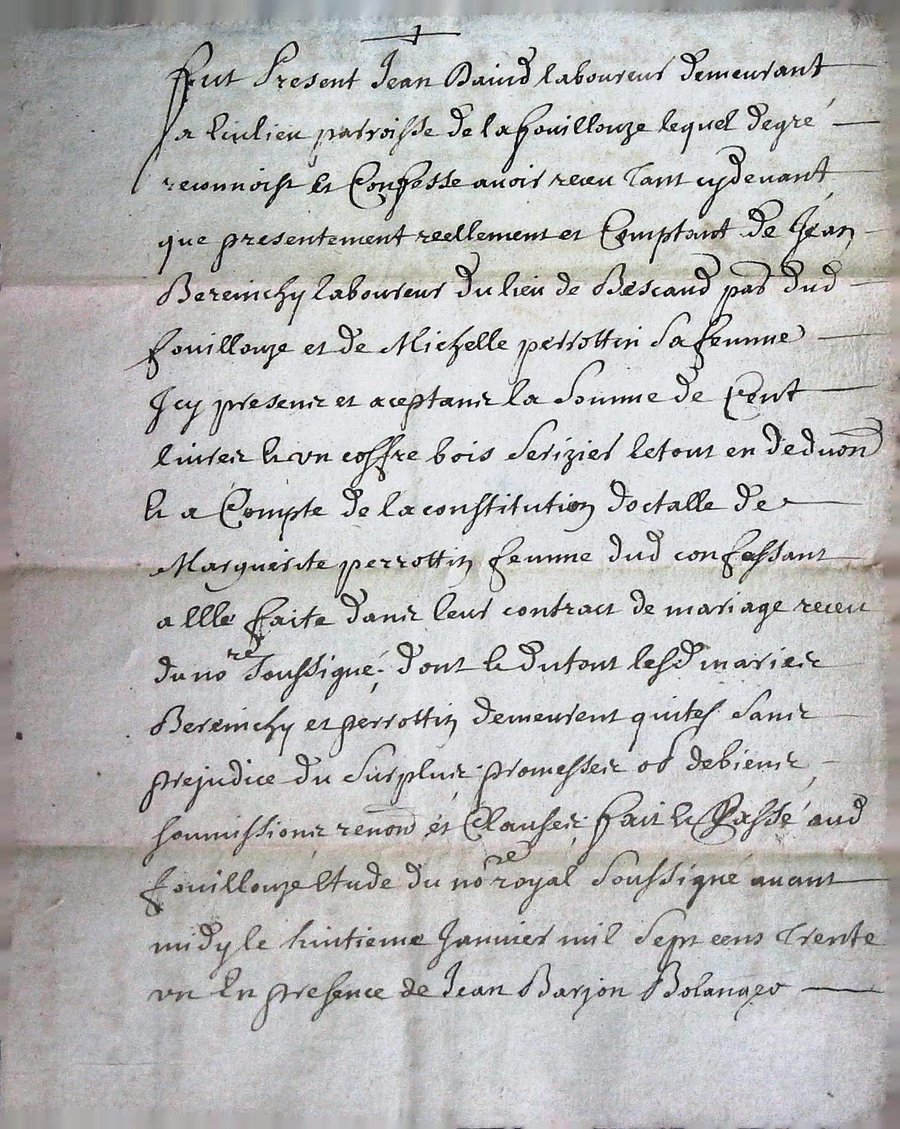 Fut Present Jean Baud laboureur demeurant
a parroisse de la fouillouze lequel degré
reconnoist et Confesse avoir receu Tant cydevant
que presentement reellement et Comptant de Jean
Bereinchy laboureur du lieu de Bescaud par dud
fouillouze et de Michelle perrottin Sa femme
Icy present et aceptant la Somme de Cent
livres & un coffre bois Serizier letout en deduon
& a Compte de la constitution doctalle de
Marguerite perrottin femme dud confessant
a Elle faite dans leur contract de mariage receu
du nore Soussigné; dont & dutout lesd mariez
Bereinchy et perrottin demeurent quites Sans
prejudice du Surplus promesses ob debiens
soumissions renon et Clauses; fait & Passé aud
fouillouze Etude du nore royal Soussigné avant
midy le huitieme Janvier mil Sept cens Trente
un En presence de Jean Barjon Bolanger